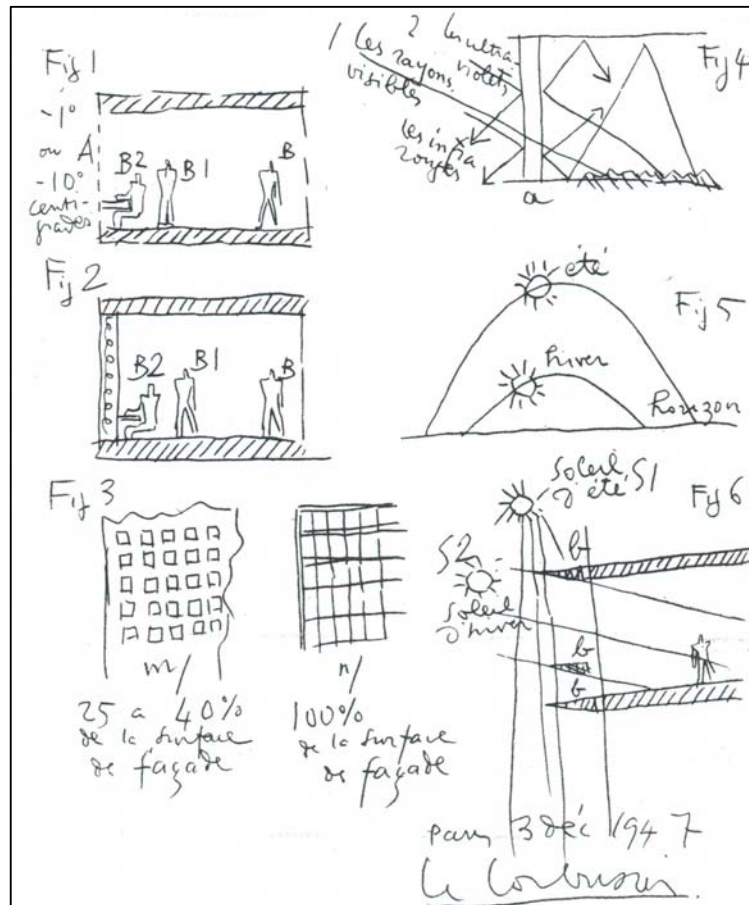 Fig 1
-1°
ou A
-10°
centi-
grades
B2 B1 B
Fig 2
B2 B1 B
Fig 3
m/
25 a 40%
de la surface
de façade
n/
100%
de la surface
de façade
1 les rayons
visibles
2 les ultra-
violets
les infra
rouges
a
Fig 4
été
hiver
horizon
Fig 5
soleil
d'été S1
Fig 6
S2
soleil
d'hiver
b
b
b
paris 3 déc 1947
Le Corbusier